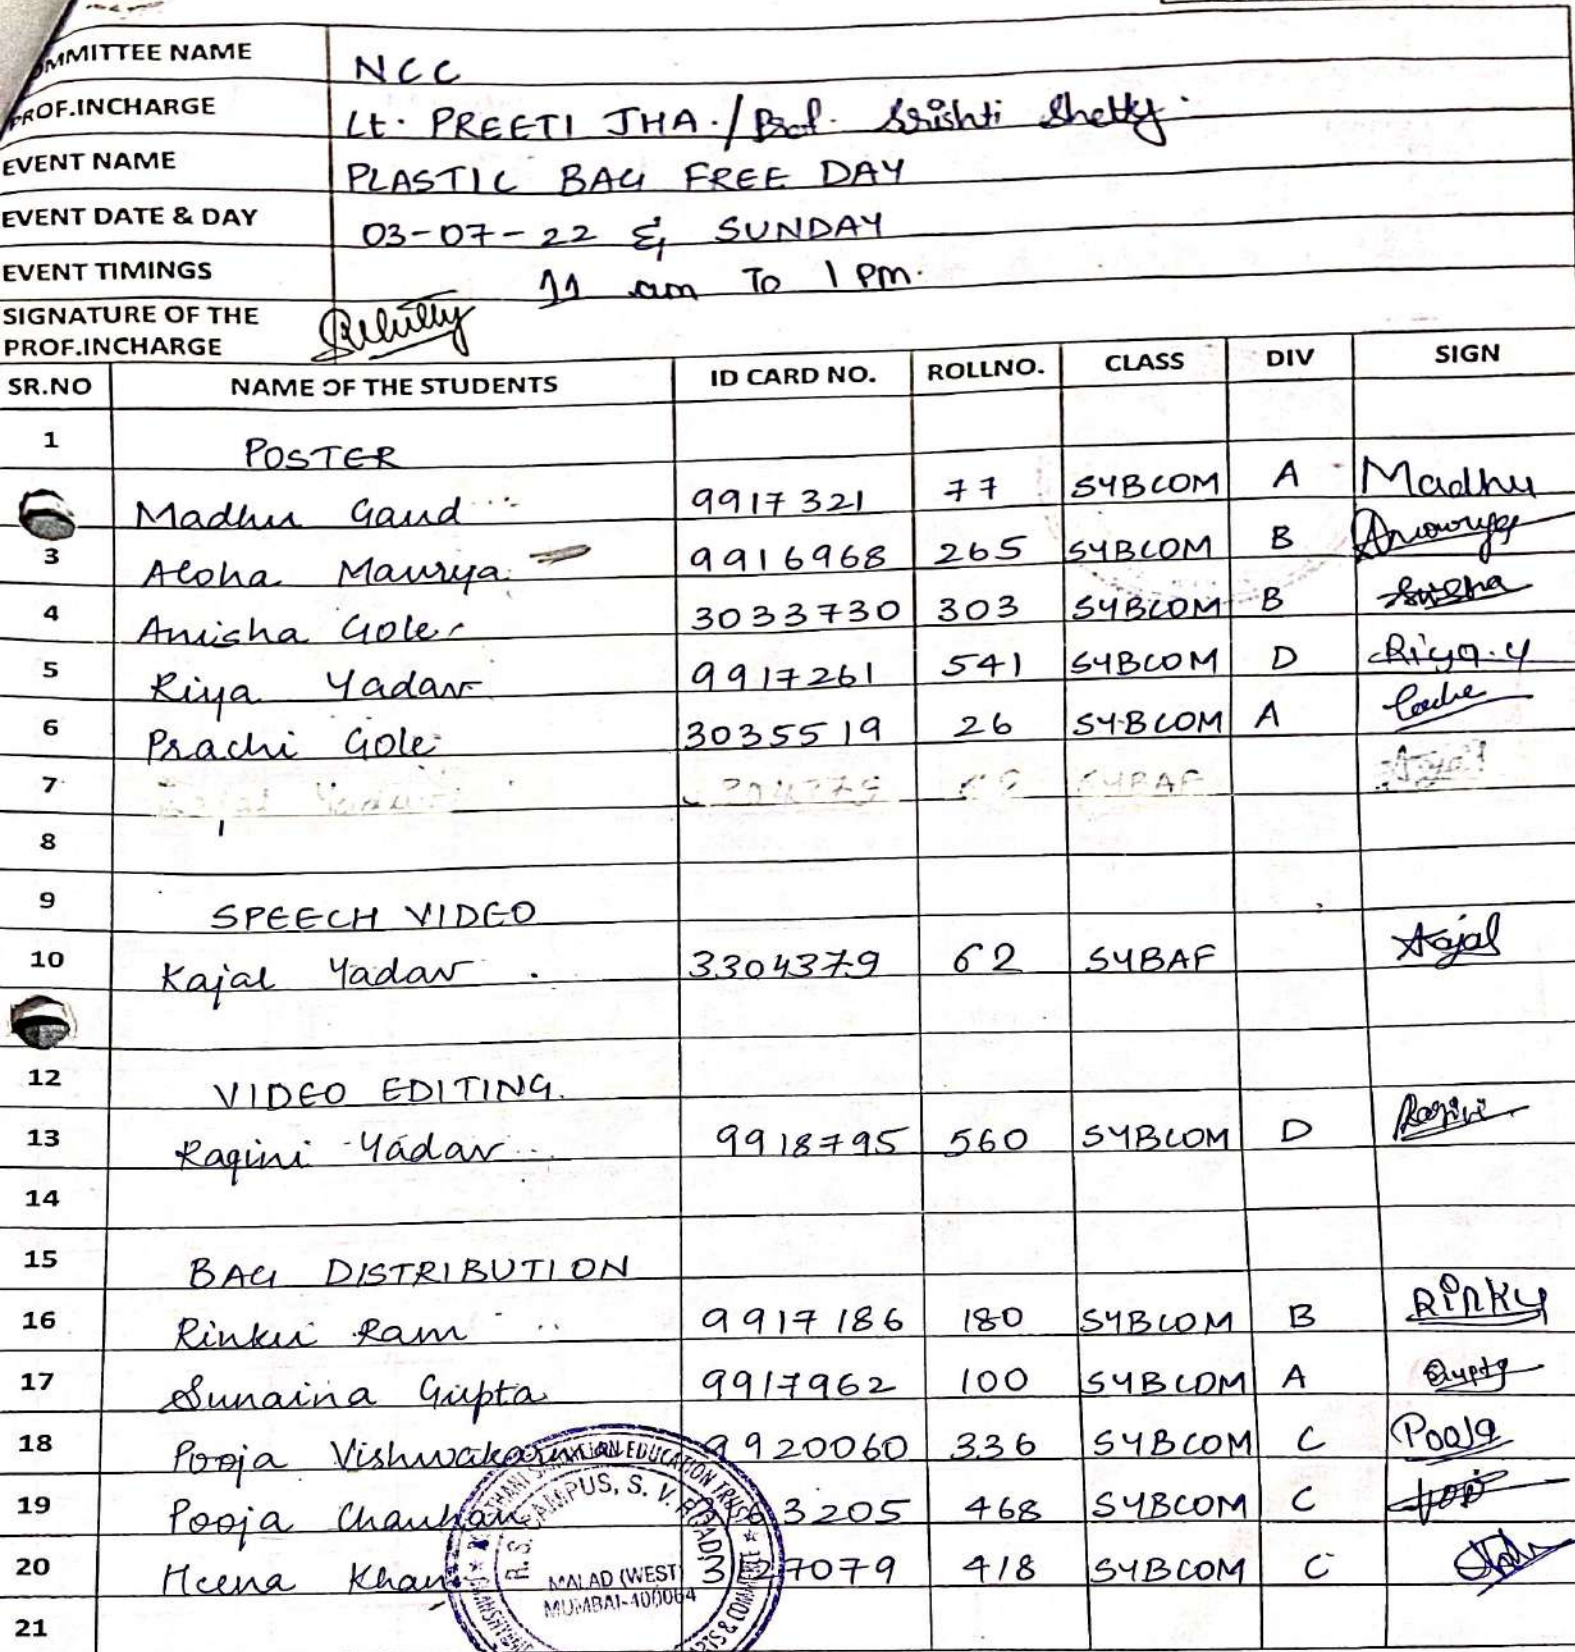 OMMITTEE NAME NCC
PROF.INCHARGE Lt. PREETI JHA./Prof. Srishti Shetty.
EVENT NAME PLASTIC BAG FREE DAY
EVENT DATE & DAY 03-07-22 & SUNDAY
EVENT TIMINGS 11 am To 1 pm.
SIGNATURE OF THE
PROF.INCHARGE
SR.NO NAME OF THE STUDENTS ID CARD NO. ROLLNO. CLASS DIV SIGN
1 POSTER
Madhu Gaud 9917321 77 SYBCOM A Madhu
3 Aloha Maurya 9916968 265 SYBCOM B
4 Anisha Gole 3033730 303 SYBCOM B
5 Riya Yadav 9917261 541 SYBCOM D Riya.y
6 Prachi Gole 3035519 26 SYBCOM A
7 SYBAF
8
9 SPEECH VIDEO
10 Kajal Yadav 3304379 62 SYBAF Kajal
12 VIDEO EDITING.
13 Ragini Yadav 9918795 560 SYBCOM D Ragini
14
15 BAG DISTRIBUTION
16 Rinku Ram 9917186 180 SYBCOM B Rinky
17 Sunaina Gupta 9917962 100 SYBCOM A Gupta
18 Pooja Vishwakarma 9920060 336 SYBCOM C Pooja
19 Pooja Chauhan 3205 468 SYBCOM C
20 Heena Khan 7079 418 SYBCOM C
21
EDUCATION TRUST
CAMPUS, S. V. ROAD
MALAD (WEST)
MUMBAI-400064